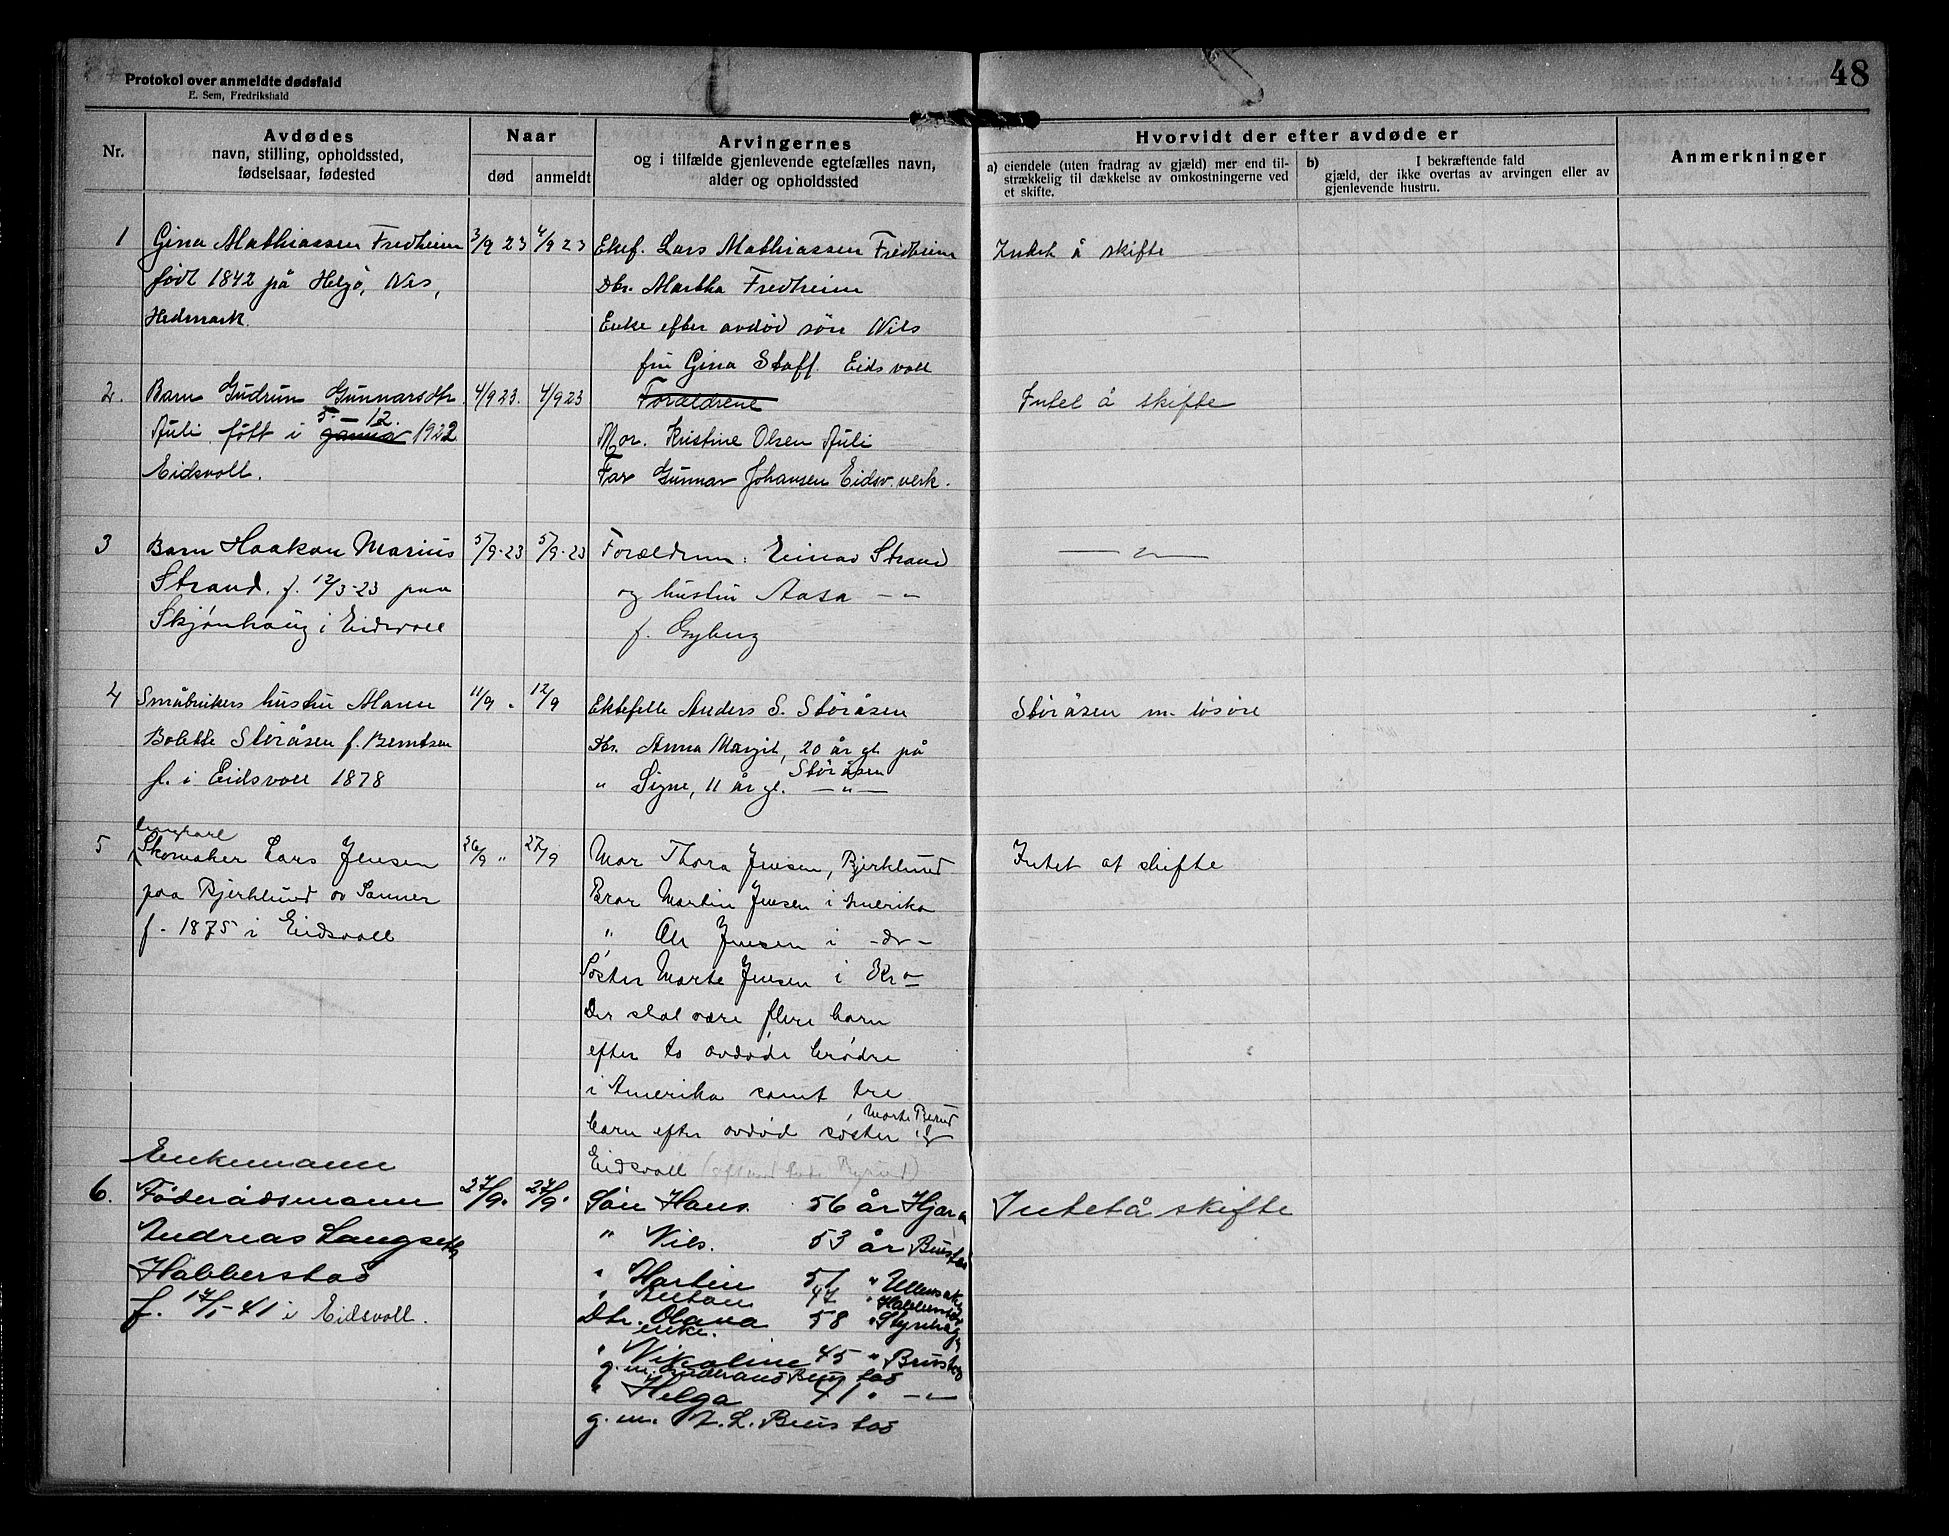 Protokol over anmeldte dødsfald
E. Sem, Fredrikshald
48
Nr.
Avdødes
navn, stilling, opholdssted,
fødselsaar, fødested
Naar
død
anmeldt
Arvingernes
og i tilfælde gjenlevende egtefælles navn,
alder og opholdssted
Hvorvidt der efter avdøde er
a) eiendele (uten fradrag av gjæld) mer end til-
strækkelig til dækkelse av omkostningerne ved
et skifte.
b) I bekræftende fald
gjæld, der ikke overtas av arvingen eller av
gjenlevende hustru.
Anmerkninger
1
Gina Mathiassen Fredheim
født 1842 på Helgø, Nes,
Hedmark.
3/9 23
4/9 23
Ektef. Lars Mathiassen Fredheim
Dtr. Martha Fredheim
Enke efter avdød søn Nils
fru Gina Staff. Eidsvoll
Intet å skifte
2.
Barn Gudrun Gunnarsdtr.
5 - 12.
Auli født i januar 1922
Eidsvoll.
4/9 23.
4/9 23
Forældrene
Mor. Kristine Olsen Auli
Far Gunnar Johansen Eidsv. verk.
Intet å skifte
3
Barn Haakon Marius
Strand. f. 12/3-23 paa
Skjønhaug i Eidsvoll
5/9-23
5/9-23
Forældrene: Einar Strand
og hustru Aasa - " -
f. Gyberg
— " —
4
Småbrukers hustru Maren
Bolette Storåsen f. Berntsen
f. i Eidsvoll 1878
11/9 "
12/9
Ektefelle Anders S. Storåsen
Dtr. Anna Margit, 20 år gl. på
Storåsen
" Signe, 11 år gl. — " —
Storåsen m. løsøre
5
ungkarl
Skomaker Lars Jensen
paa Bjerklund av Sanner
f. 1875 i Eidsvoll
26/9 "
27/9
Mor Thora Jensen, Bjerklund
Bror Martin Jensen i Amerika
" Ole Jensen i - do -
Søster Marte Jensen i Kra
Der skal være flere barn
efter to avdøde brødre
i Amerika samt tre
barn efter avdød søster, Marte Berud
Eidsvoll
Intet at skifte
6.
Enkemann
Føderådsmann
Andreas Langseth
Habberstad
f. 17/1-41 i Eidsvoll.
27/9.
27/9.
Søn Hans. 56 år Hjera
" Nils. 53 år Brustad
" Martin 51 " Ullensaker
" Anton 47 " Habberstad
Dtr. Olava 58 " Styrihagen
enke.
" Nikoline 45 " Brustad
g.m. Brustad
" Helga 41 " - " -
g.m. A. L. Brustad
Intet å skifte